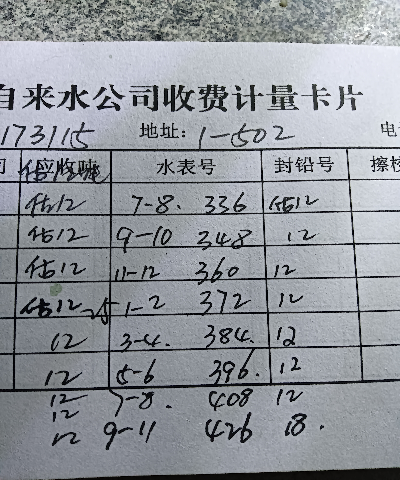 自来水公司收费计量卡片
173115 地址: 1-502 电
应收吨 水表号 封铅号 擦楼
估12 7-8. 336 估12
估12 9-10 348 12
估12 11-12 360 12
估12 25 1-2 372 12
12 3-4. 384. 12
12 5-6 396. 12
12 7-8. 408 12
12
12 9-11 426 18.